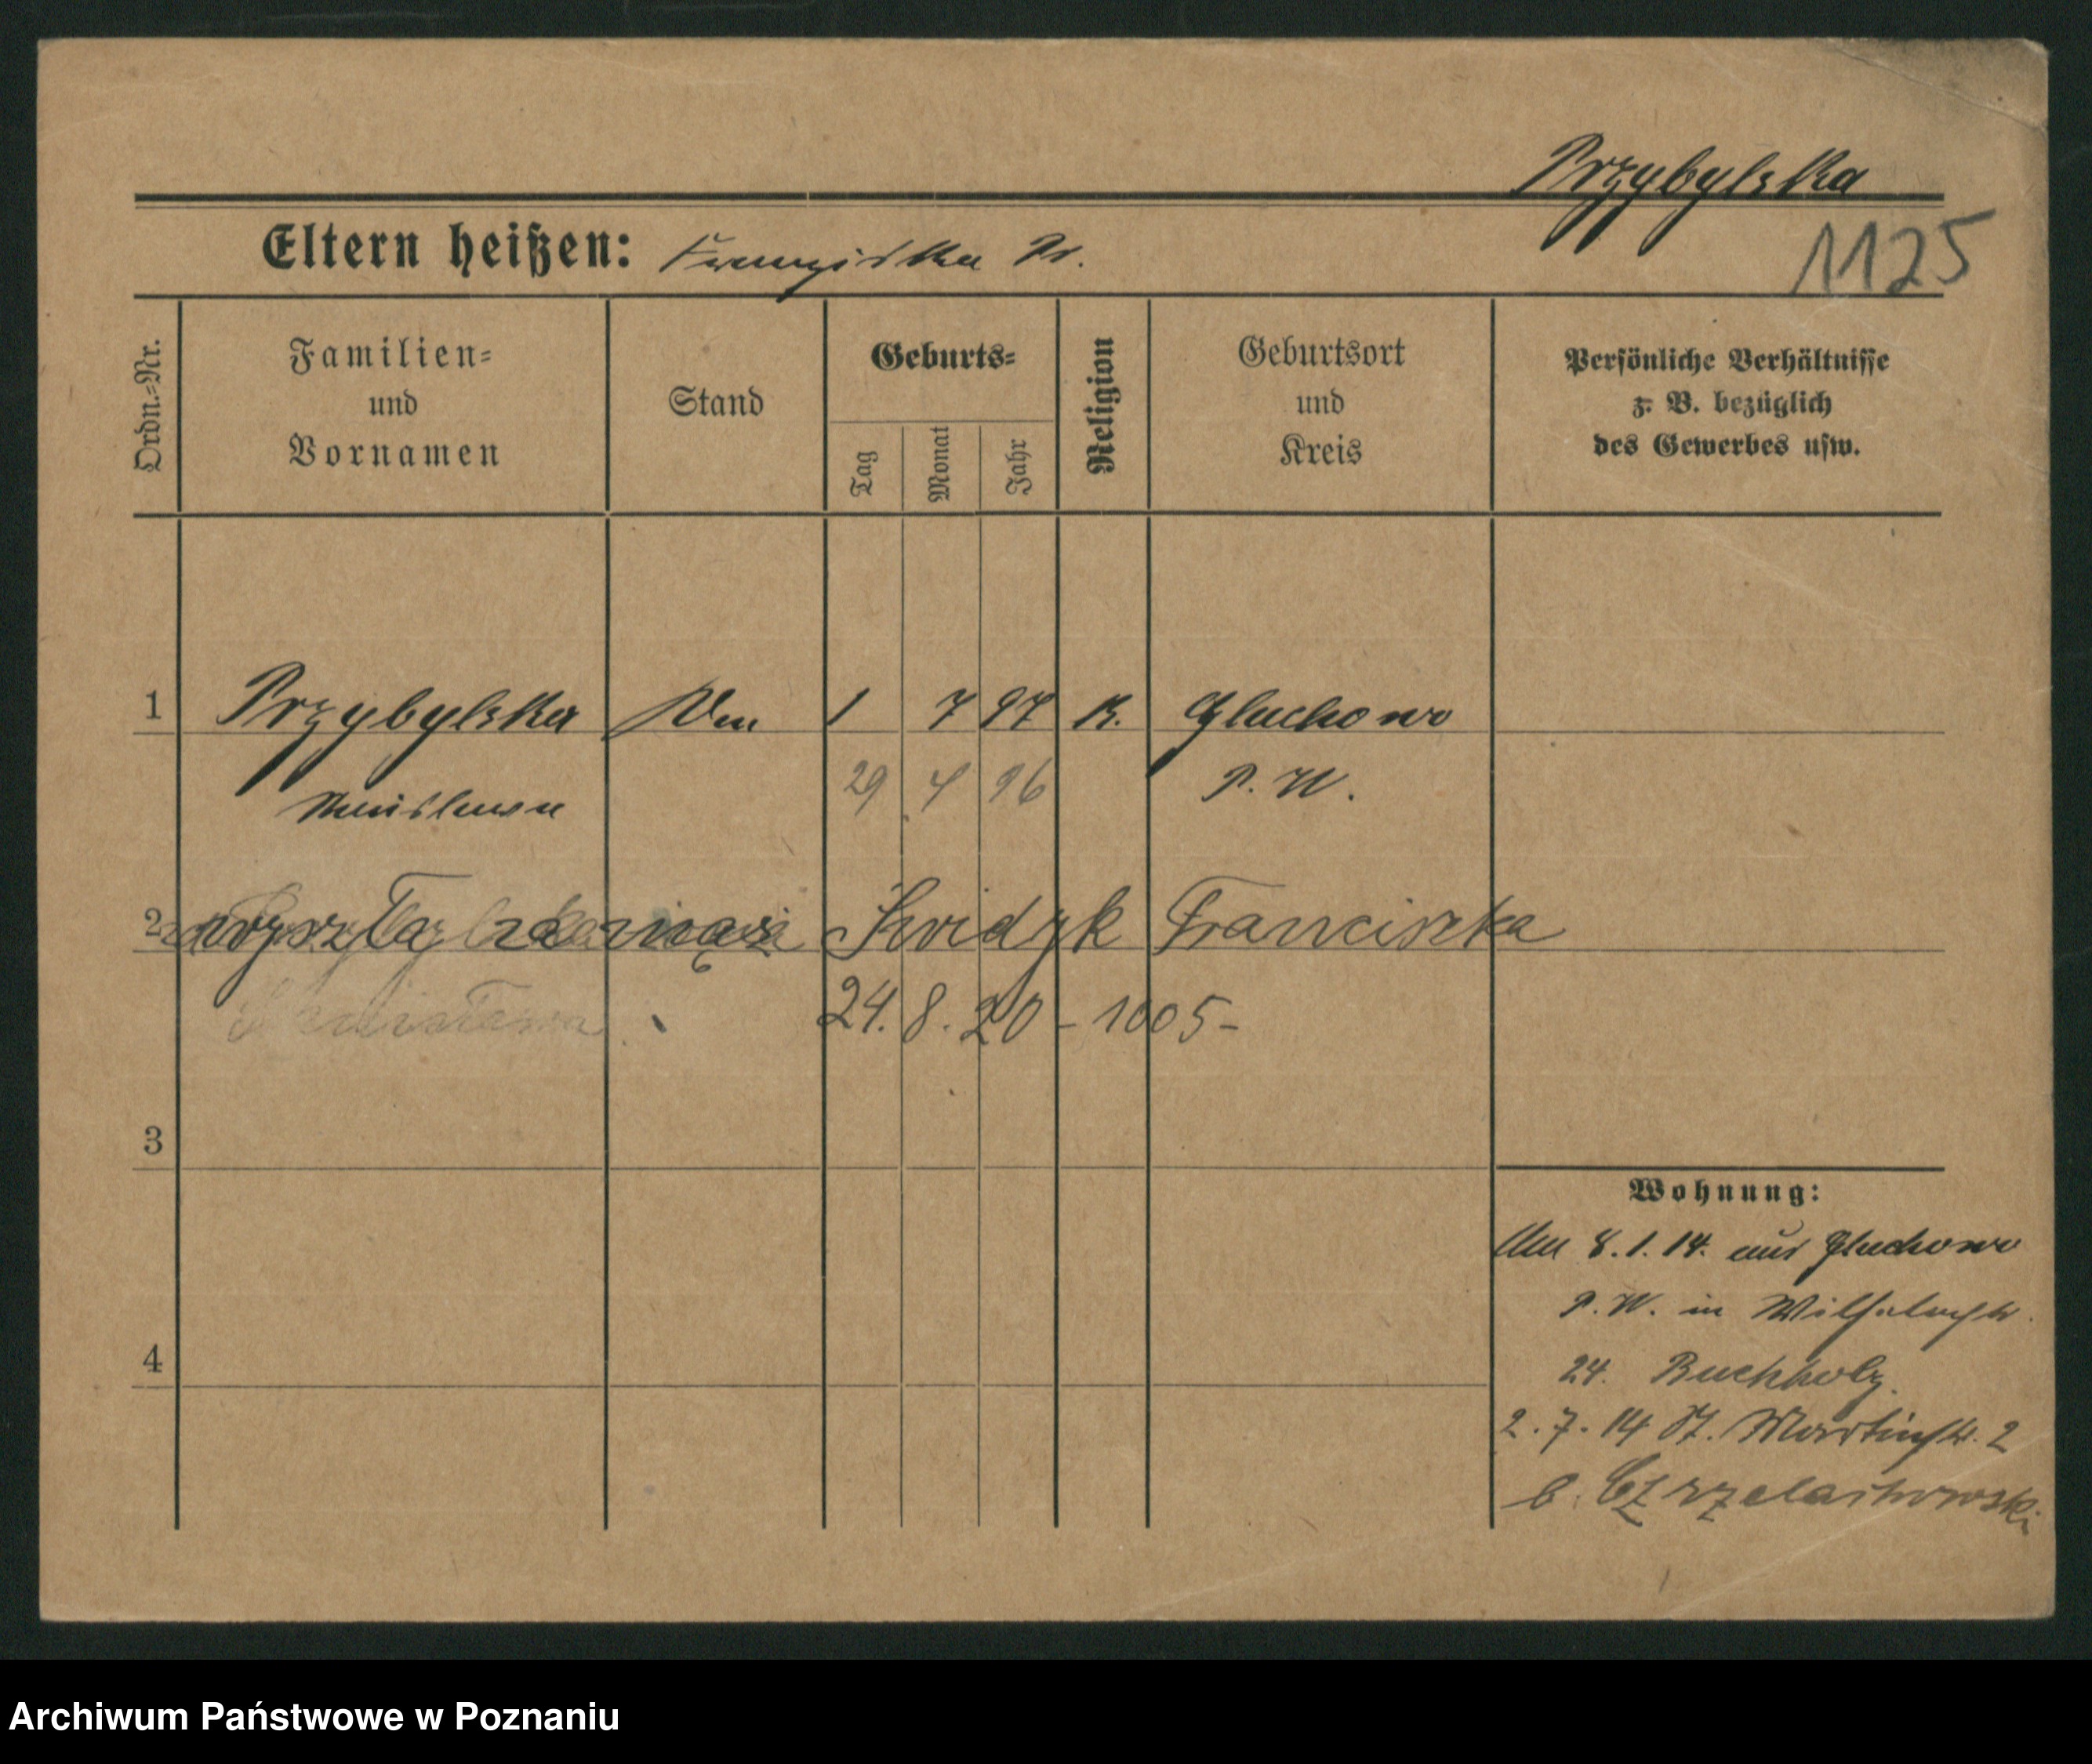 Przybylska
Eltern heißen: Franziska Pr.
1125
Ordn.-Nr.
Familien-
und
Vornamen
Stand
Geburts-
Tag
Monat
Jahr
Religion
Geburtsort
und
Kreis
Persönliche Verhältnisse
z. B. bezüglich
des Gewerbes usw.
1 Przybylska 1 7 97 K. Gluchowo
29 4 96 P. W.
2 wyszła za mąż Franciszka
24. 8. 20 - 1005 -
3
4
Wohnung:
8. 1. 14. aus Gluchowo
P. W. in Wilhelmstr.
24. Buchholz
2. 7. 14 St. Martinstr. 2
b.
Archiwum Państwowe w Poznaniu